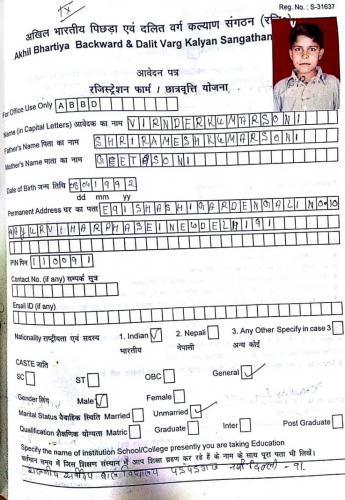 Reg. No. : S-31637
अखिल भारतीय पिछड़ा एवं दलित वर्ग कल्याण संगठन (रजि
Akhil Bhartiya Backward & Dalit Varg Kalyan Sangathan
आवेदन पत्र
रजिस्ट्रेशन फार्म / छात्रवृत्ति योजना
For Office Use Only A B B D
Name (in Capital Letters) आवेदक का नाम VIRNDERKUMARSONI
Father's Name पिता का नाम SHRIRAMESHKUMARSONI
Mother's Name माता का नाम GEETASONI
Date of Birth जन्म तिथि 08041992
dd mm yy
Permanent Address घर का पता E91SHASHIGARDENGALINO.10
MAYURVIHARPHASEINEWDELHI91
PIN पिन 110091
Contact No. (if any) सम्पर्क सूत्र
Email ID (if any)
Nationality राष्ट्रीयता एवं सदस्य 1. Indian 2. Nepali 3. Any Other Specify in case 3
भारतीय नेपाली अन्य कोई
CASTE जाति
SC ST OBC General
Gender लिंग Male Female
Marital Status वैवाहिक स्थिति Married Unmarried
Qualification शैक्षणिक योग्यता Matric Graduate Inter Post Graduate
Specify the name of institution School/College presently you are taking Education
वर्तमान समय में जिस शिक्षण संस्थान में आप शिक्षा ग्रहण कर रहे हैं के नाम के साथ पूरा पता भी लिखें।
राजकीय सर्वोदय बाल विद्यालय नयी दिल्ली - 91